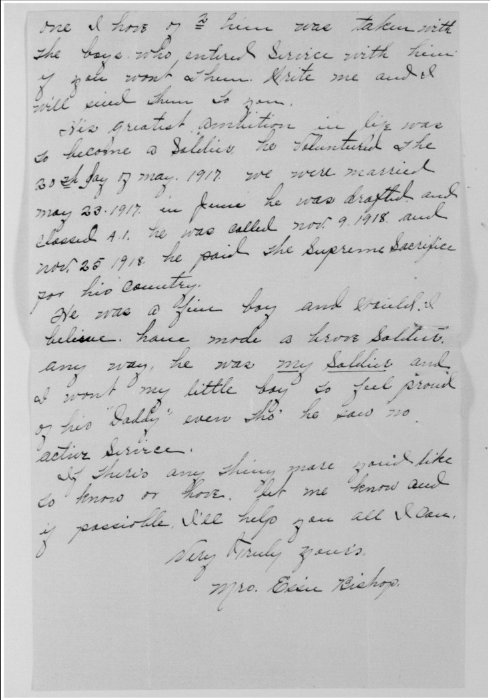 one I have of him was taken with
the boys who entered Service with him
if you want them. Write me and I
will send them to you.
His greatest ambition in life was
to become a Soldier he Voluntured the
20th day of may. 1917. we were married
may 23. 1917. in June he was drafted and
classed A.1. he was called nov. 9. 1918 and
nov. 25 1918 he paid the Supreme Sacrifice
for his Country.
He was a fine boy and Would. I
believe. have made a brave Soldier.
any way, he was my Soldier and
I want my little boy to feel proud
of his "Daddy" even tho' he saw no
active Service.
If theres any thing more you'd like
to know or have. let me know and
if possible, I'll help you all I can.
Very Truly yours.
Mrs. Bishop.